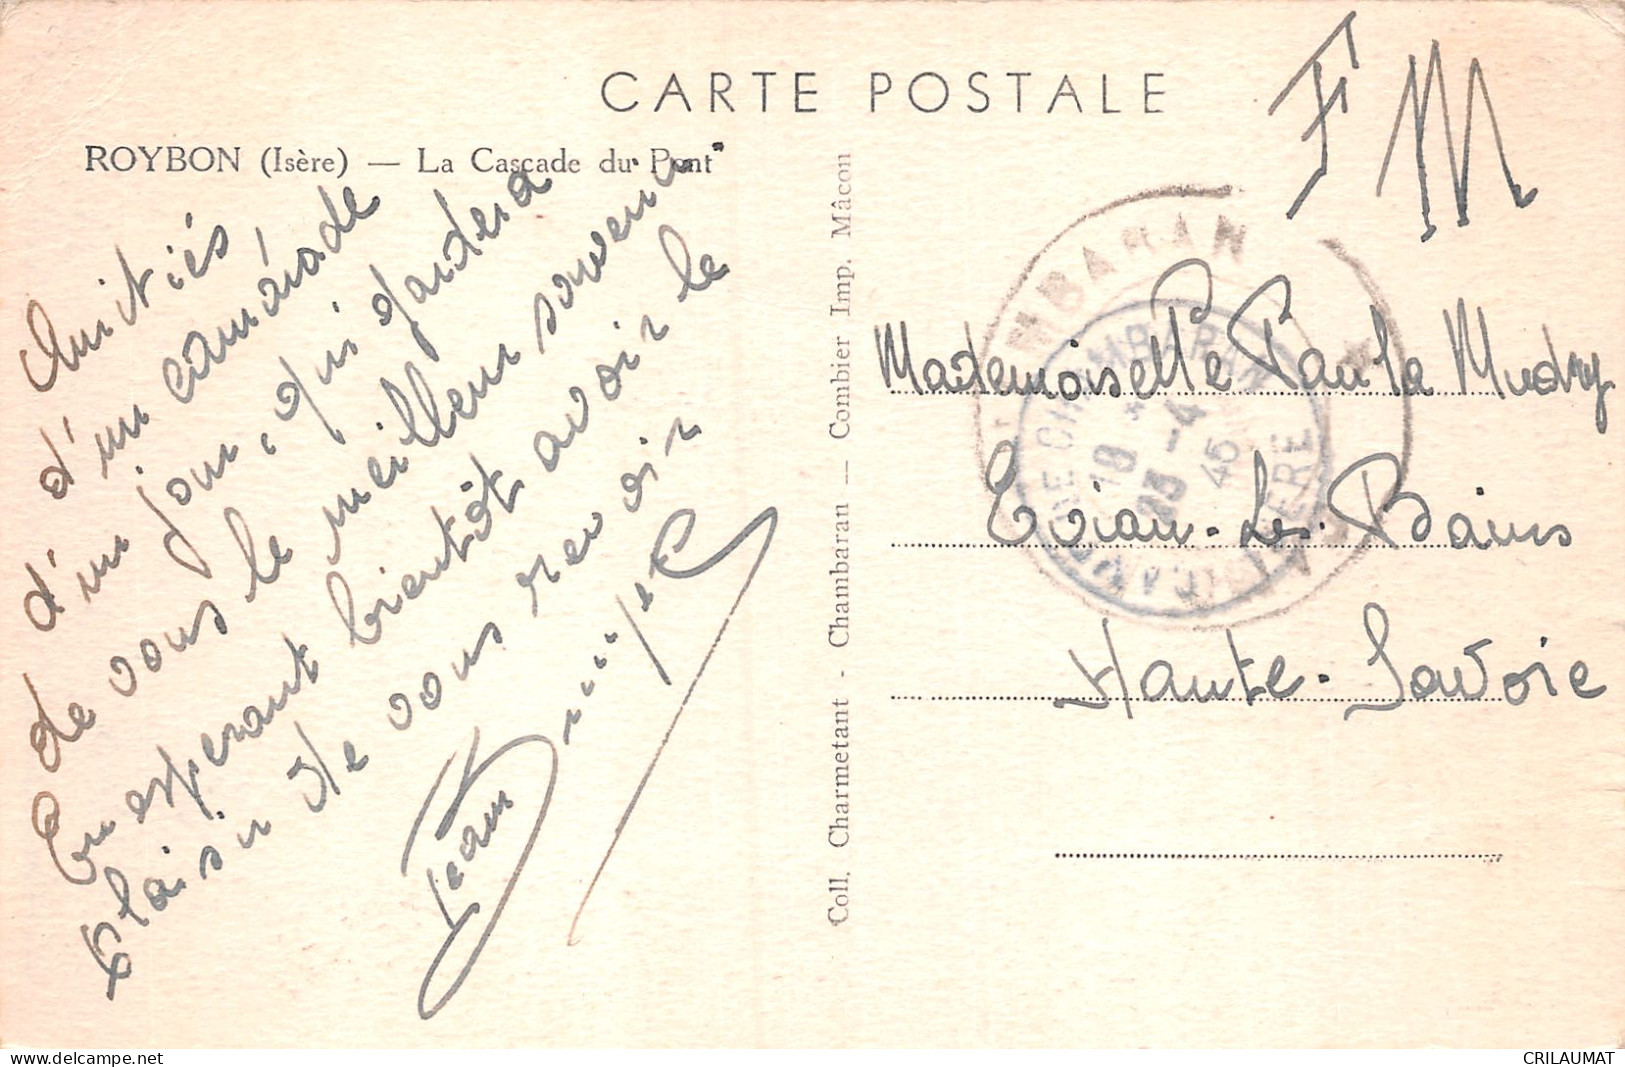 CARTE POSTALE
ROYBON (Isère) — La Cascade du Pont
F M
Amitiés
d'un camarade
d'un jour, qui gardera
de vous le meilleur souvenir
En espérant bientôt avoir le
plaisir de vous revoir
Jean
Coll. Charmetant - Chambaran — Combier Imp. Mâcon
MBARAN
DE CHAMBARAN
18
23 -4
45
ISERE
Mademoiselle Paula Mudry
Evian-Les-Bains
Haute-Savoie
delcampe.net
CRILAUMAT